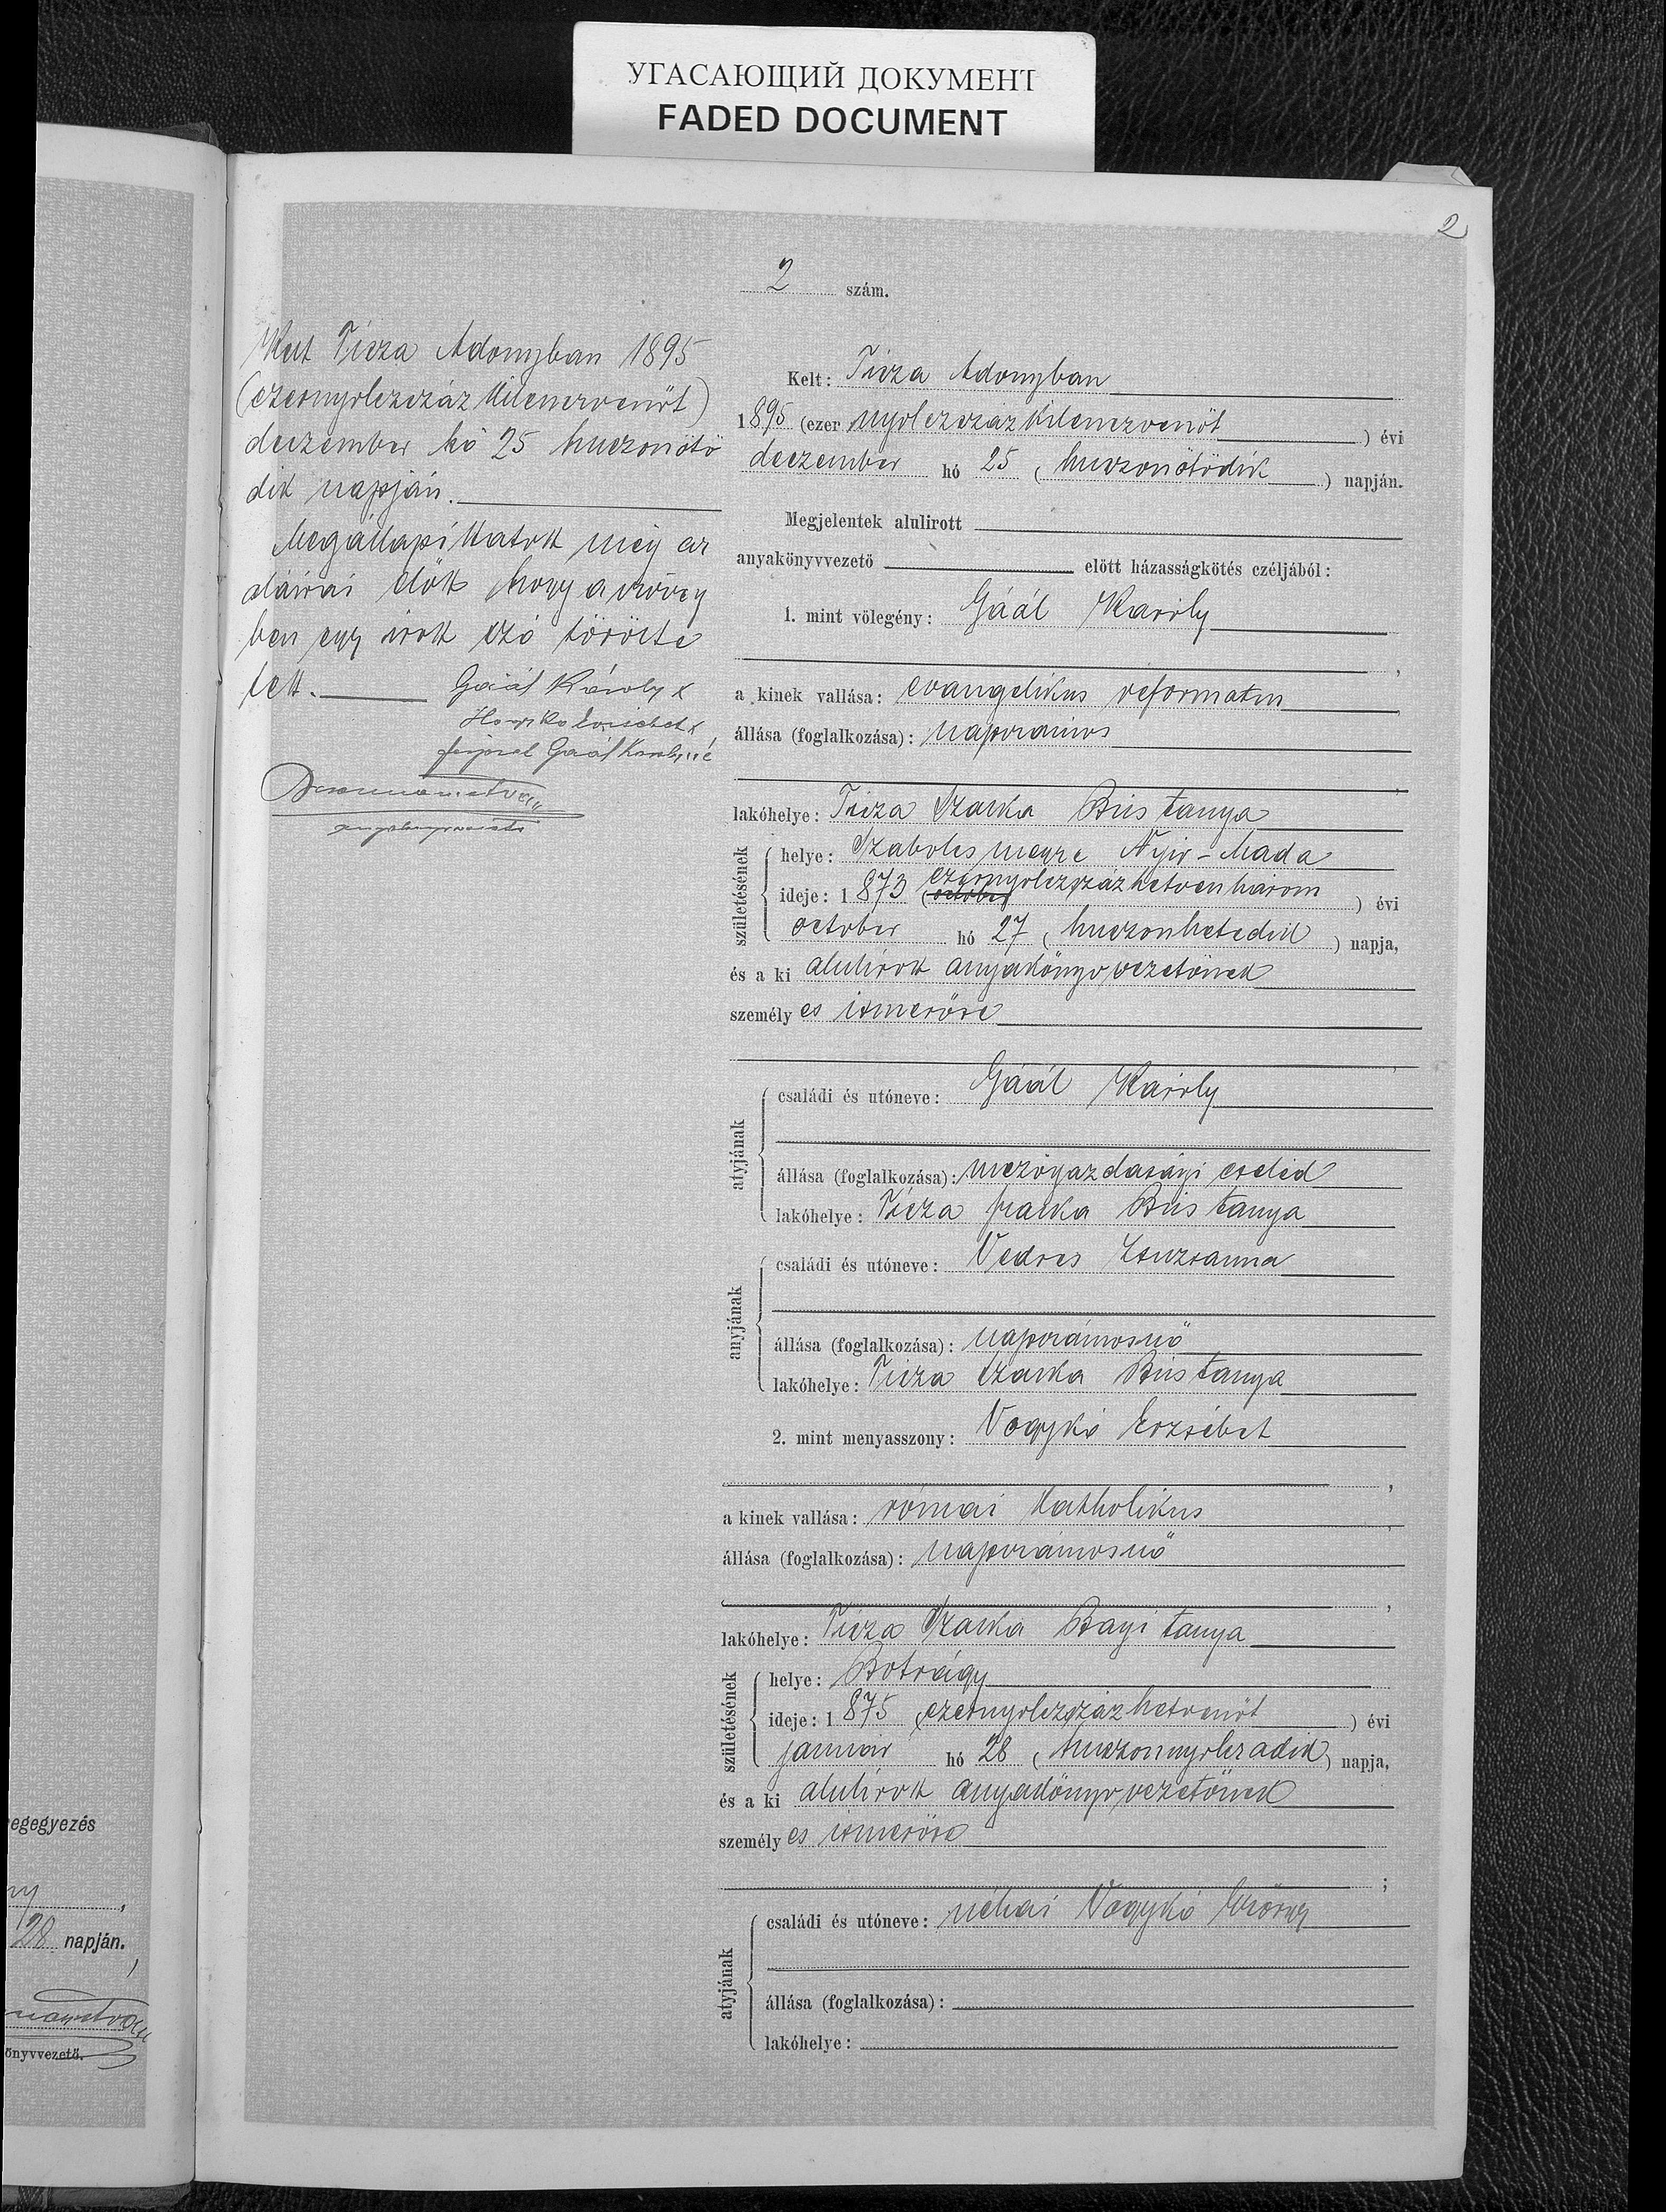 УГАСАЮЩИЙ ДОКУМЕНТ
FADED DOCUMENT
2
2 szám.
Kelt Tisza Adonyban 1895
(ezernyolczszáz kilenczvenöt)
deczember hó 25 huszonötö
dik napján.
Megállapíttatott még az
aláírás előtt hogy a szöveg
ben egy írott szó törölte
tett. Gaál Károly x
Erzsébet x
Gaál Károlyné
Kelt: Tisza Adonyban
1895 (ezer nyolczszáz kilenczvenöt) évi
deczember hó 25 (huszonötödik) napján.
Megjelentek alulirott
anyakönyvvezető előtt házasságkötés czéljából:
1. mint vőlegény: Gáál Károly
a kinek vallása: evangelikus reformatus
állása (foglalkozása): napszámos
lakóhelye: Tisza Szalka Bús tanya
születésének
helye: Szabolcs megye Nyir-Mada
ideje: 1873 (october ezernyolczszázhetvenhárom) évi
october hó 27 (huszonhetedik) napja,
és a ki alulírott anyakönyvvezetőnek
személyes ismerőse
atyjának
családi és utóneve: Gáál Károly
állása (foglalkozása): mezőgazdasági cseléd
lakóhelye: Tisza Szalka Bús tanya
anyjának
családi és utóneve: Vedres Zsuzsanna
állása (foglalkozása): napszámosnő
lakóhelye: Tisza Szalka Bús tanya
2. mint menyasszony: Vogykó Erzsébet
a kinek vallása: római katholikus
állása (foglalkozása): napszámosnő
lakóhelye: Tisza Szalka Bagi tanya
születésének
helye: Botrágy
ideje: 1875 (ezernyolczszázhetvenöt) évi
január hó 28 (huszonnyolczadik) napja,
és a ki alulírott anyakönyvvezetőnek
személyes ismerőse
;
atyjának
családi és utóneve: néhai Vogykó György
állása (foglalkozása):
lakóhelye:
egegyezés
28 napján.
önyvvezető.